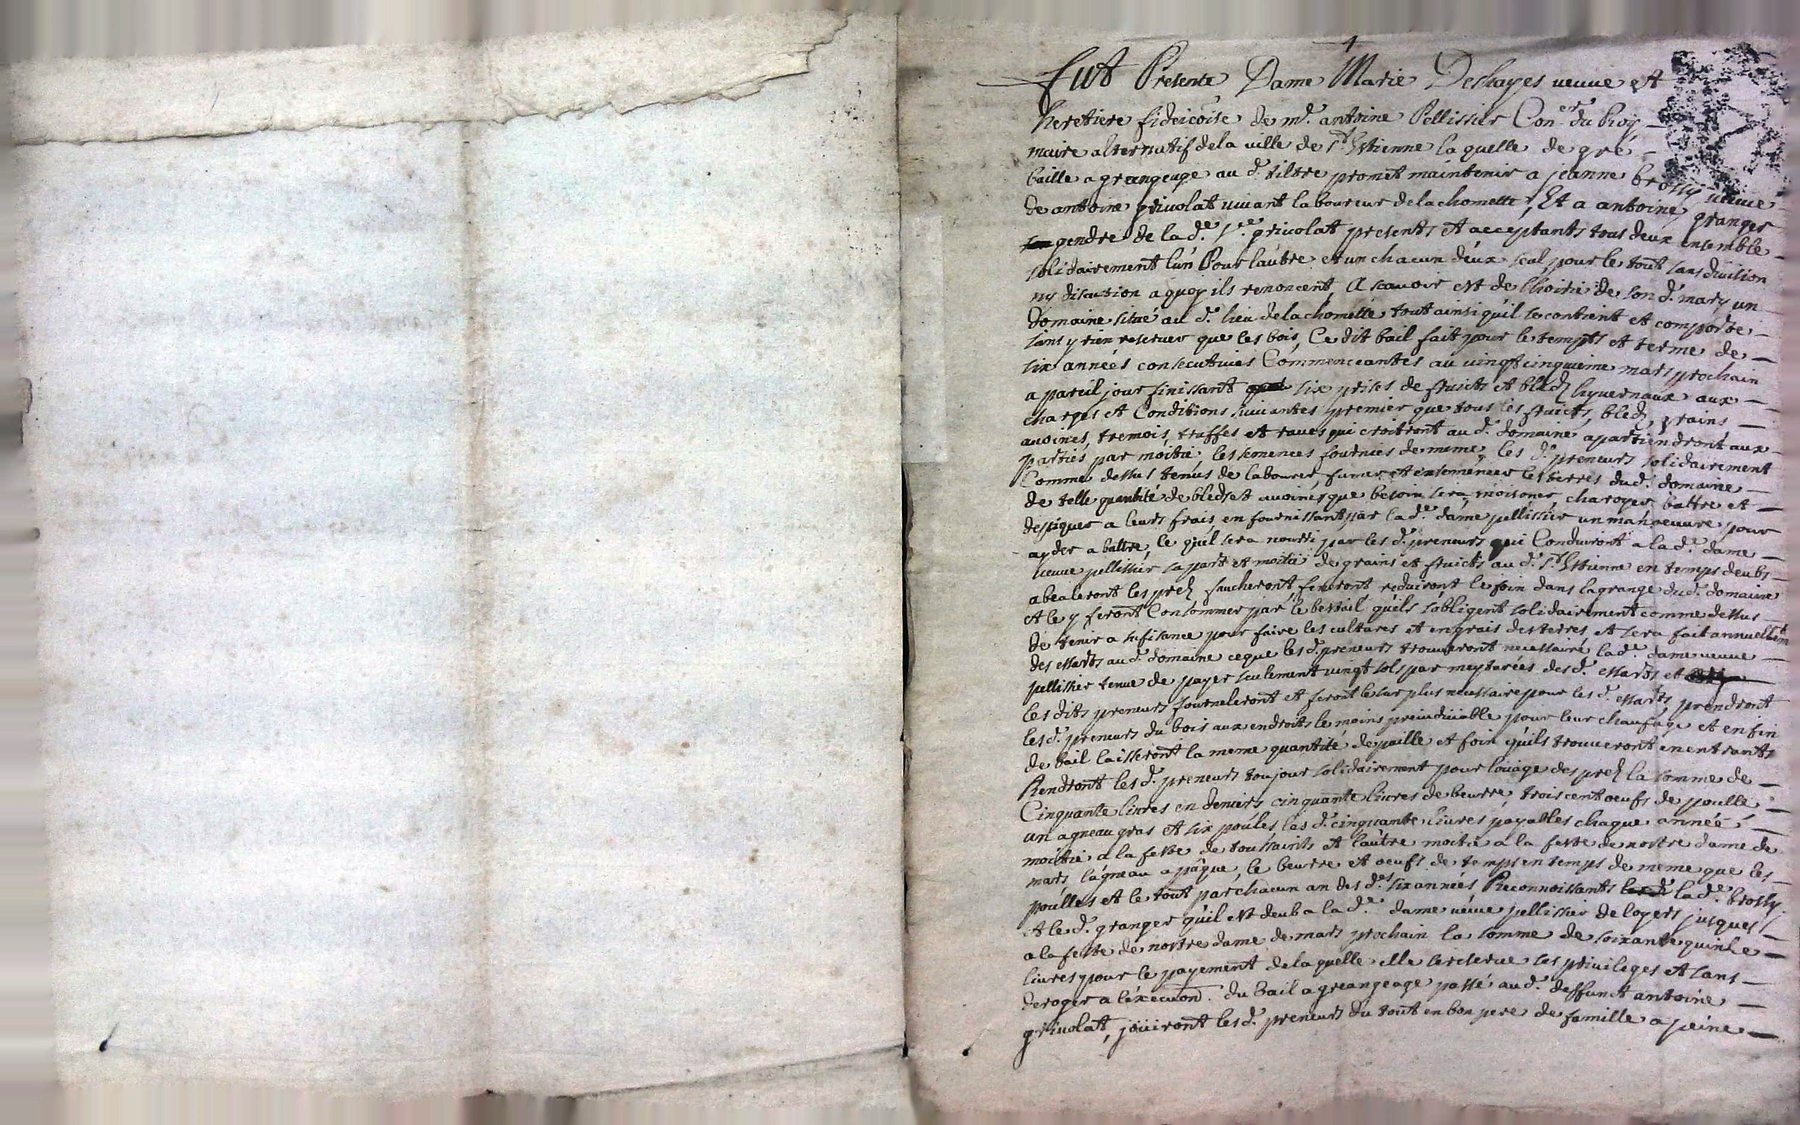 Fut Presente Dame Marie Deshayes veuve et
heretiere fideicoise de mr. antoine Pellissier Coner. du Roy
maire alternatif de la ville de st. Estienne laquelle de gré
baille a grangeage au d. tiltre promet maintenir a jeanne brossy veuve
de antoine grivolat vivant laboureur de la chomette, Et a antoine granger
gendre de la de. ve. grivolat presents et acceptants tous deux ensemble
solidairement l'un Pour l'autre et un chacun d'eux seul pour le tout sans division
ny discution a quoy ils renoncent, A scavoir est de l'hoirie de son d. mary un
domaine situé au d. lieu de la chomette tout ainsi qu'il se contient et comporte
sans y rien reserver que les bois, Ce dit bail fait pour le temps et terme de
six années consecutives Commenceantes au vingt cinquieme mars prochain
a pareil jour finissant six prises de fruicts et bleds hyvernaux aux
charges et Conditions suivantes premier que tous les fruicts, bleds, grains
avoines, tremois, truffes et raves qui croitront au d. domaine apartiendront aux
parties par moitié les semences fournies de meme, les d. preneurs solidairement
Comme dessus tenus de labourer, fumer et ensemencer les terres du d. domaine
de telle quantité de bleds et avoines que besoin sera moisoner, charoyer battre et
despiquer a leurs frais en fournissant par la de. dame pellissier un manoeuvre pour
ayder a battre, le quel sera nourri par les d. preneurs qui Conduiront a la de. dame
veuve pellissier sa part et moitié de grains et fruicts au d. st. Estienne en temps deubs
abealeront les preds faucheront, feneront reduiront le foin dans la grange du d. domaine
et le y feront Consommer par le bestail qu'ils s'obligent solidairement comme dessus
de tenir a sufisance pour faire les cultures et engrais des terres et sera fait annuellemt.
des essarts au d. domaine ce que les d. preneurs trouveront necessaire la de. dame veuve
pellissier tenue de payer seulement vingt sols par meyterées des d. essarts et
les dits preneurs fourneleront et feront le surplus necessaire pour les d. essarts, prendront
les d. preneurs du bois aux endroits le moins prejudiciable pour leur chaufage et en fin
de bail laisseront la meme quantité de paille et foin qu'ils trouveront en entrants
Rendront les d. preneurs toujour solidairement pour louage des preds la somme de
Cinquante livres en deniers cinquante livres de beurre, trois cent oeufs de poulle
un agneau gras et six poules les d. cinquante livres payables chaque année
moitié a la feste de toussaints et l'autre moitié a la feste de nostre dame de
mars l'agneau a pâque, le beurre et oeufs de temps en temps de meme que les
poulles et le tout par chacun an des d. six années Reconnoissants la de. brossy
et le d. granger qu'il est deub a la de. dame veuve pellissier de loyers jusques
a la feste de nostre dame de mars prochain la somme de soixante quinse
livres pour le payement de la quelle elle se reserve ses privileges et sans
deroger a l'execuon. du bail a greangeage passé au d. deffunct antoine
grivolat, jouiront les d. preneurs du tout en bon pere de famille a peine